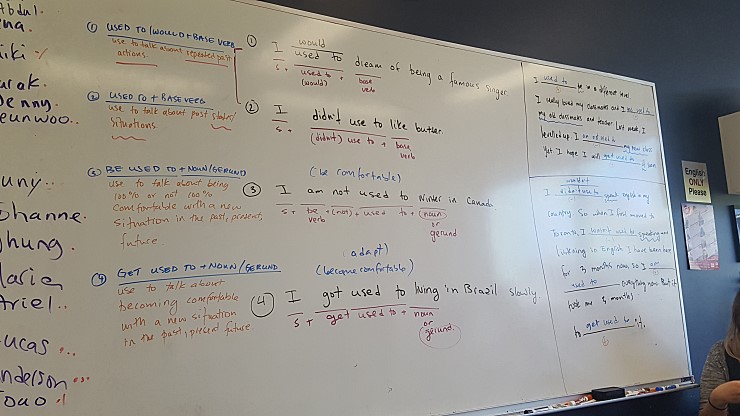 Abdul.
ena.
iki
arak.
Jenny.
eunwoo..
uny..
ohanne.
hung.
Maria
Ariel..
Lucas
nderson
Joao
① USED TO/WOULD + BASE VERB
use to talk about repeated past
actions.
② USED TO + BASE VERB
use to talk about past states/
situations.
③ BE USED TO + NOUN/GERUND
use to talk about being
100% or not 100%
comfortable with a new
situation in the past, present,
future
④ GET USED TO + NOUN/GERUND
use to talk about
becoming comfortable
with a new situation
in the past, present future.
① would
I used to dream of being a famous singer.
s + used to + base
(would) verb
② I didn't use to like butter.
s + (didn't) use to + base
verb
(be comfortable)
③ I am not used to winter in Canada
s + be + (not) + used to + noun
verb or
gerund
(adapt)
(become comfortable)
④ I got used to living in Brazil slowly
s + get used to + noun
or
gerund.
I used to be in a different level.
I really loved my classmates and I was used to
my old classmates and teacher. Last week, I
levelled up. I am not used to my new class
yet. I hope I will get used to it soon
wouldn't
I didn't use to speak english in my
country. So when I first moved to
Toronto, I wasn't used to speaking and
listening in English. I have been here
for 3 months now, so I am
used to everything now. But it
took me 3 months
to get used to it.
English
ONLY
Please